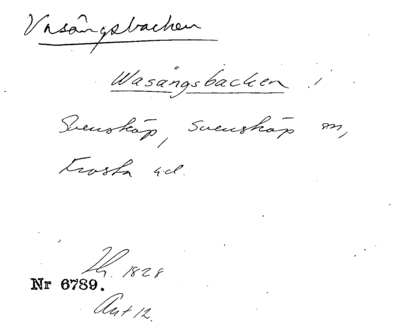 Vasångsbacken
Wasångsbacken i
Svensköp, Svensköp sn,
Frosta hd.
Th. 1828
Nr 6789.
Ant 12.